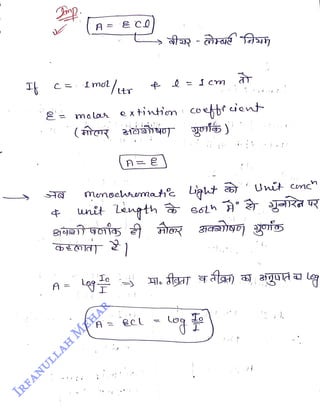 Imp.
A = ε c l
→ बीयर - लैम्बर्ट नियम
If c = 1 mol/ltr & l = 1 cm तो
ε = molar extintion coefficient
(मोलर अवशोषण गुणांक)
A = ε
→ जब monochrematic light को unit concⁿ
& unit length के solⁿ में से गुजारने पर
अवशोषणांक ही मोलर अवशोषण गुणांक
कहलाता है।
A = log I₀/I ⇒ प्रा. तीव्रता व तीव्रता का अनुपात का log
A = εcl = log I₀/I
IRFANULLAH MEHAR